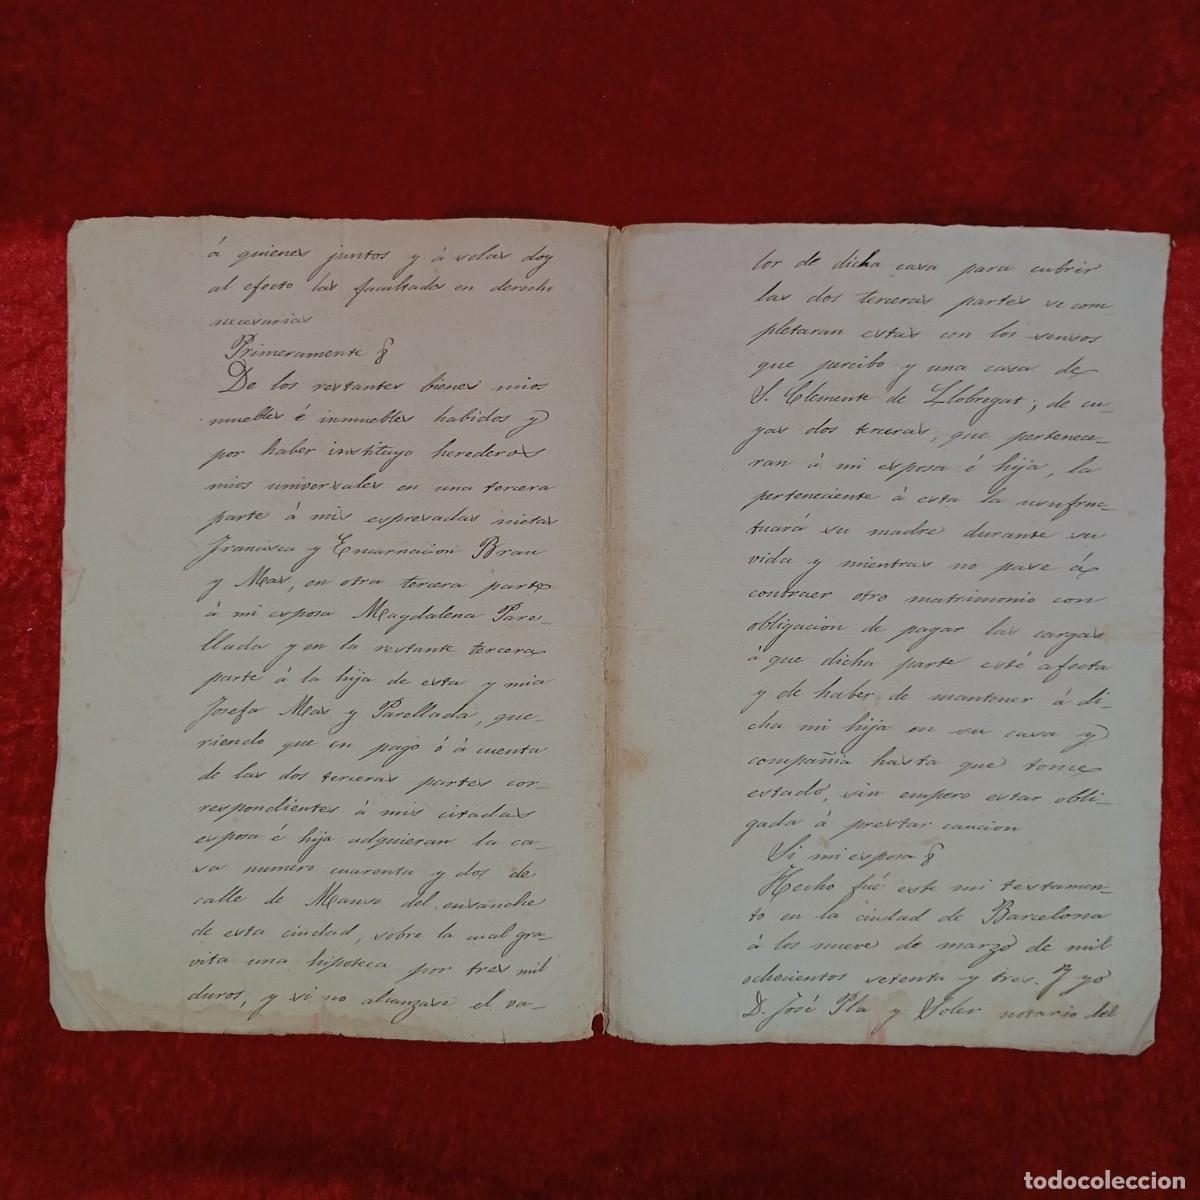 á quienes juntos y á solas doy
al efecto las facultades en derecho
necesarias
Primeramente §
De los restantes bienes mios
muebles é inmuebles habidos y
por haber instituyo herederos
mios universales en una tercera
parte á mis espresadas nietas
Francisca y Encarnacion Brau
y Mas, en otra tercera parte
á mi esposa Magdalena Pare-
llada y en la restante tercera
parte á la hija de esta y mia
Josefa Mas y Parellada, que-
riendo que en pago ó á cuenta
de las dos terceras partes cor-
respondientes á mis citadas
esposa é hija adquieran la ca-
sa numero cuarenta y dos de
calle de Manso del ensanche
de esta ciudad, sobre la cual gra-
vita una hipoteca por tres mil
duros, y si no alcanzase el va-
lor de dicha casa para cubrir
las dos terceras partes se com-
pletaran estas con los sensos
que percibo y una casa de
S. Clemente de Llobregat; de cu-
yas dos terceras, que pertenece-
ran á mi esposa é hija, la
perteneciente á esta la usufruc-
tuará su madre durante su
vida y mientras no pase á
contraer otro matrimonio con
obligacion de pagar las cargas
á que dicha parte esté afecta
y de haber de mantener á di-
cha mi hija en su casa y
compañia hasta que tome
estado, sin empero estar obli-
gada á prestar caucion
Si mi esposa §
Hecho fué este mi testamen-
to en la ciudad de Barcelona
á los nueve de marzo de mil
ochocientos setenta y tres. Y yo
D. José Pla y Soler notario del
todocoleccion